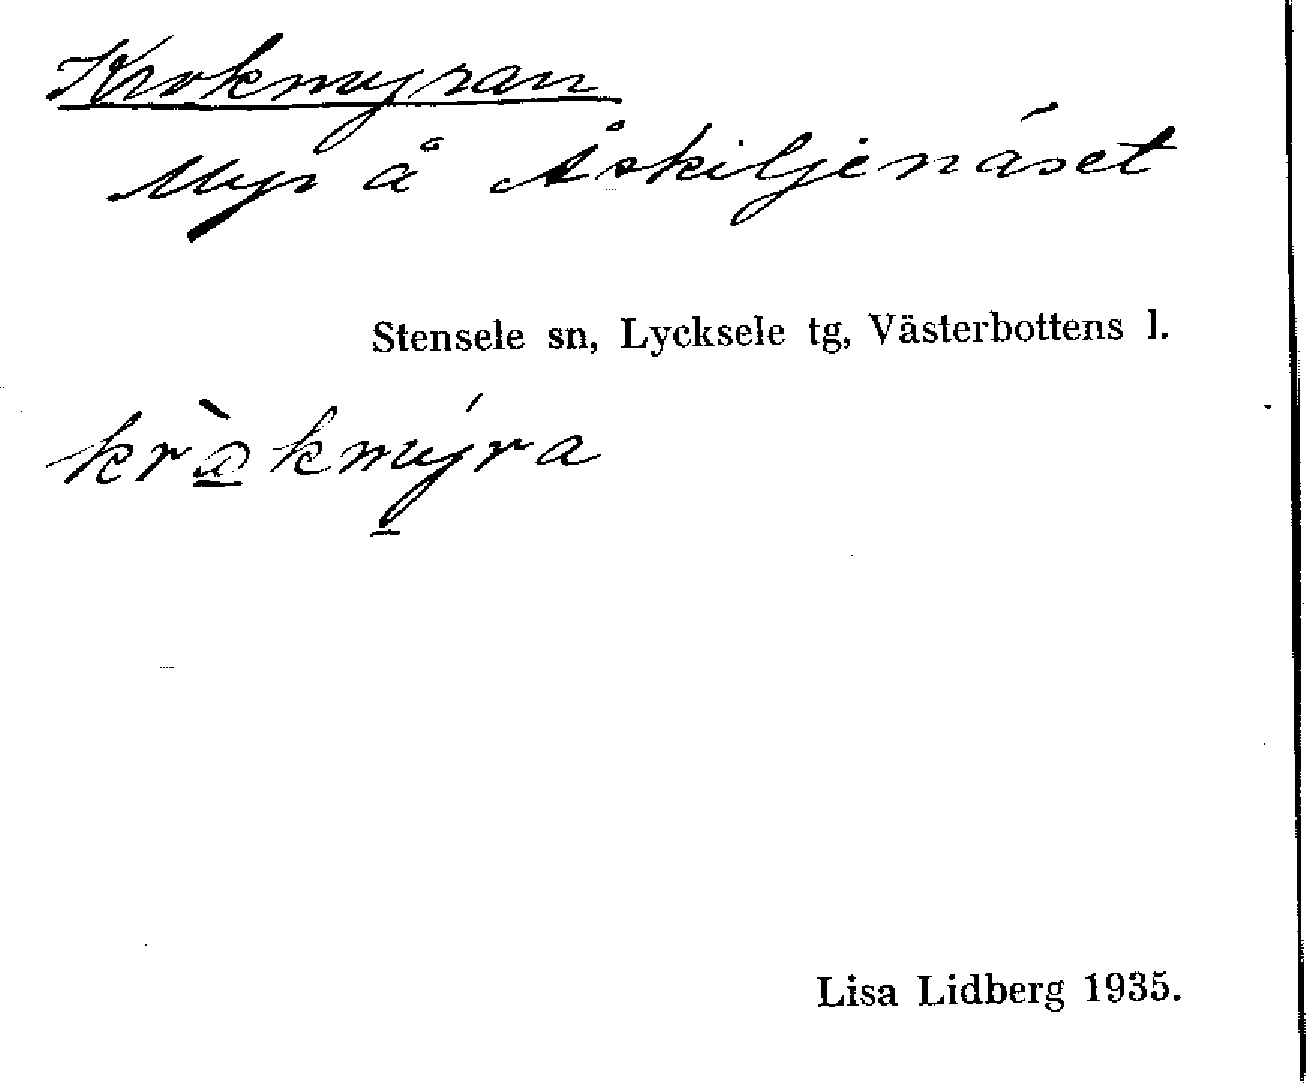 Krokmyran
Myr å Åskiljenäset
Stensele sn, Lycksele tg, Västerbottens l.
kròkmýra
Lisa Lidberg 1935.